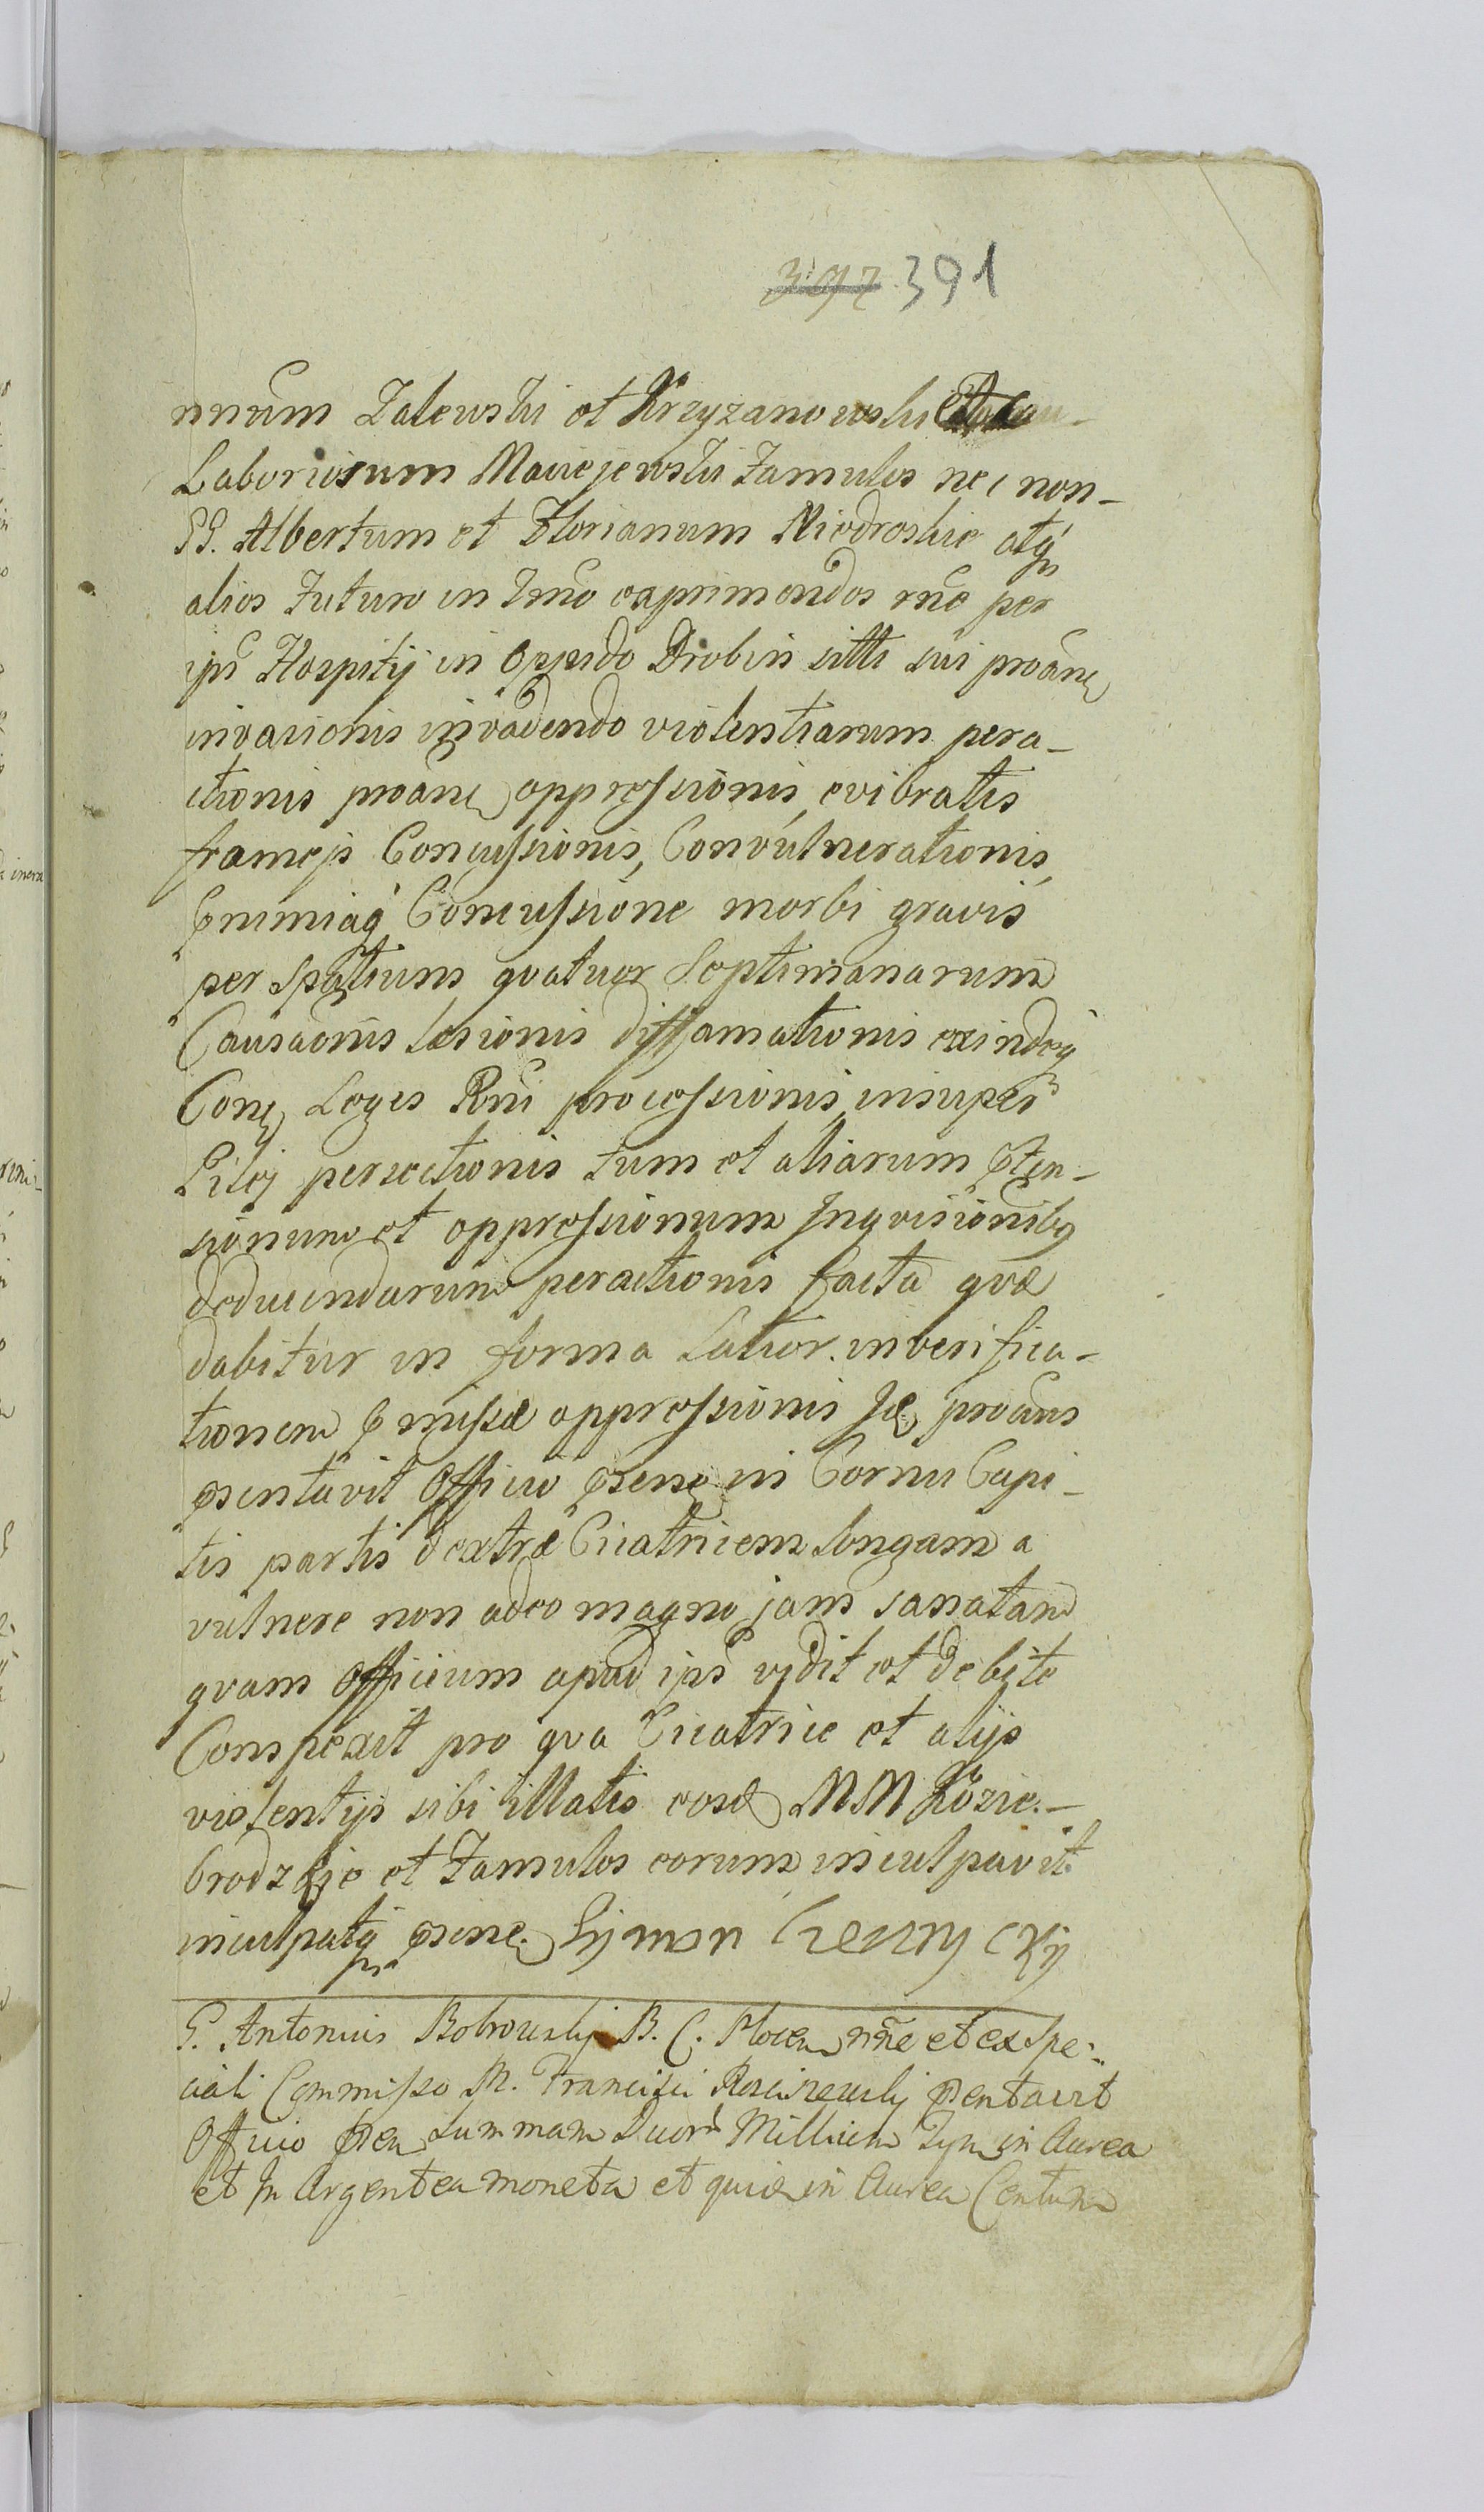 397 391
nnum Zalewski et Krzyzanowski
Laboriosum Maciejewski Famulos nec non-
GG. Albertum et Florianum Niedroskie atq
alios Futuro in Tmo exprimendos rne per
ips Hospitij in Oppido Drobin sitti sui proane
invasionis invadendo violentiarum pera-
ctionis proane oppressionis evibratis
frameis Concussionis, Convulnerationis,
Enimiaq Concussione morbi gravis
per spatium qvatuor Septimanarum
Causaonis læsionis diffamationis exindeq
Conq Leges Rni processionis, insuper
Litej persectionis tum et aliarum pten-
sionum et oppressionum Inqvisitionibq
deducendarum peractionis facta qvæ
dabitur in forma Latior. in verifica-
tionem pmissæ oppressionis Sæ proans
psentavit Officio psene in Cornu Capi-
tis partis dextræ Cicatricem longam a
vulnere non adeo magno jam sanatam
qvam Officium apud ips vidit et debite
Conspexit pro qva Cicatrice et alijs
violentijs sibi illatis eosd MM Kozie-
brodzkie et Famulos eorum inculpavit
inculpatq psene Symon Czerny cky
G. Antonius Bobrowskij B. C. Plocen nne et ex Spe-
ciali Commisso M. Francisci Rosciszewskij psentavit
Officio psen Summam Duor Millium Tyn in Aurea
et In Argentea moneta et quid in Aurea Centum